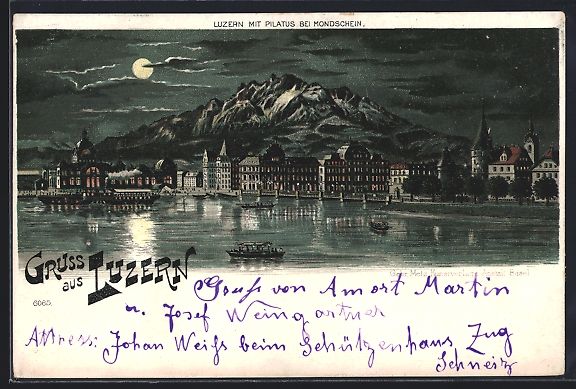 LUZERN MIT PILATUS BEI MONDSCHEIN.
GRUSS AUS LUZERN
6065.
Gebr. Metz, Kunstverlags-Anstalt Basel
Gruß von Amort Martin
u. Josef Weingartner
Attress: Johan Weiß beim Schützenhaus Zug
Schweiz